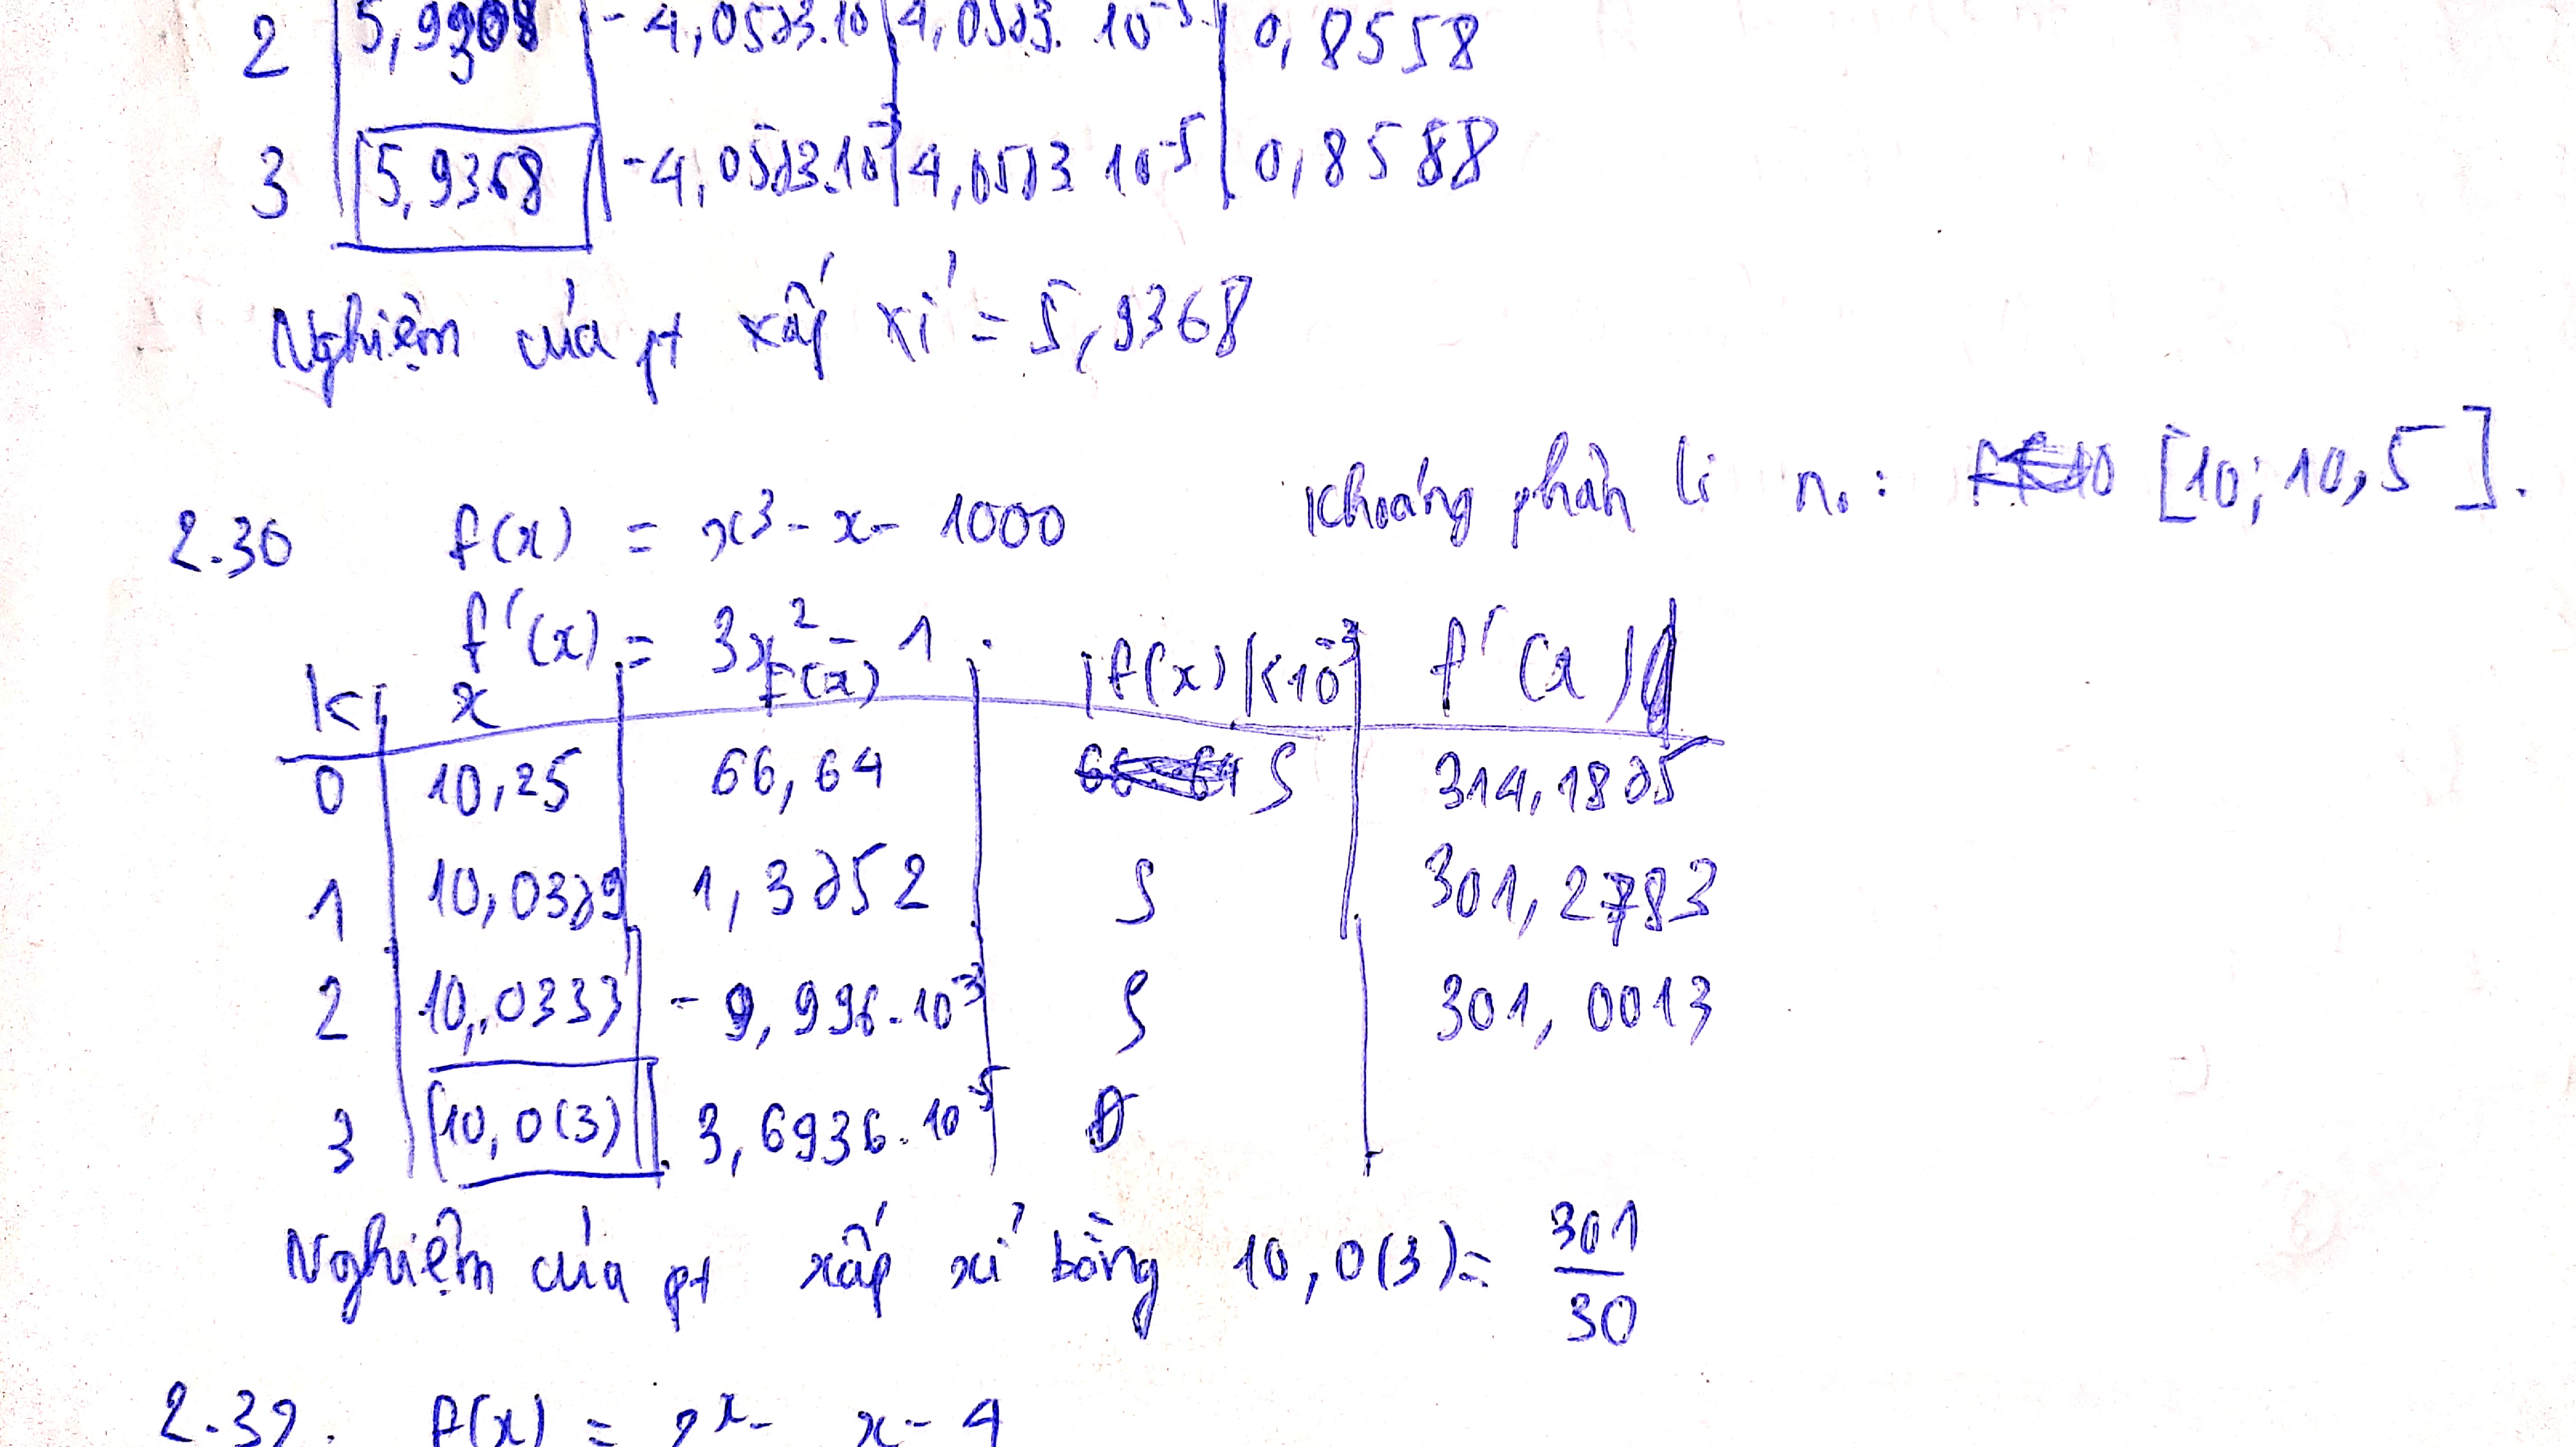 2 5,9308 -4,0523.10 4,0523. 10⁻⁵ 0,8558
3 5,9368 -4,0523.10⁻³ 4,0523 10⁻⁵ 0,8588
Nghiệm của pt xấp xỉ = 5,9368
Khoảng phân li n₀: [10; 10,5].
2.30 f(x) = x³ - x - 1000
f'(x) = 3x² - 1.
k x f(x) |f(x)|<10⁻³ f'(x)
0 10,25 66,64 S 314,1825
1 10,0329 1,3252 S 301,2783
2 10,0333 -9,996.10⁻³ S 301,0013
3 10,0(3) 3,6936.10⁻⁵ Đ
Nghiệm của pt xấp xỉ bằng 10,0(3) = 301/30
2.32. f(x) = 2ˣ - x - 4